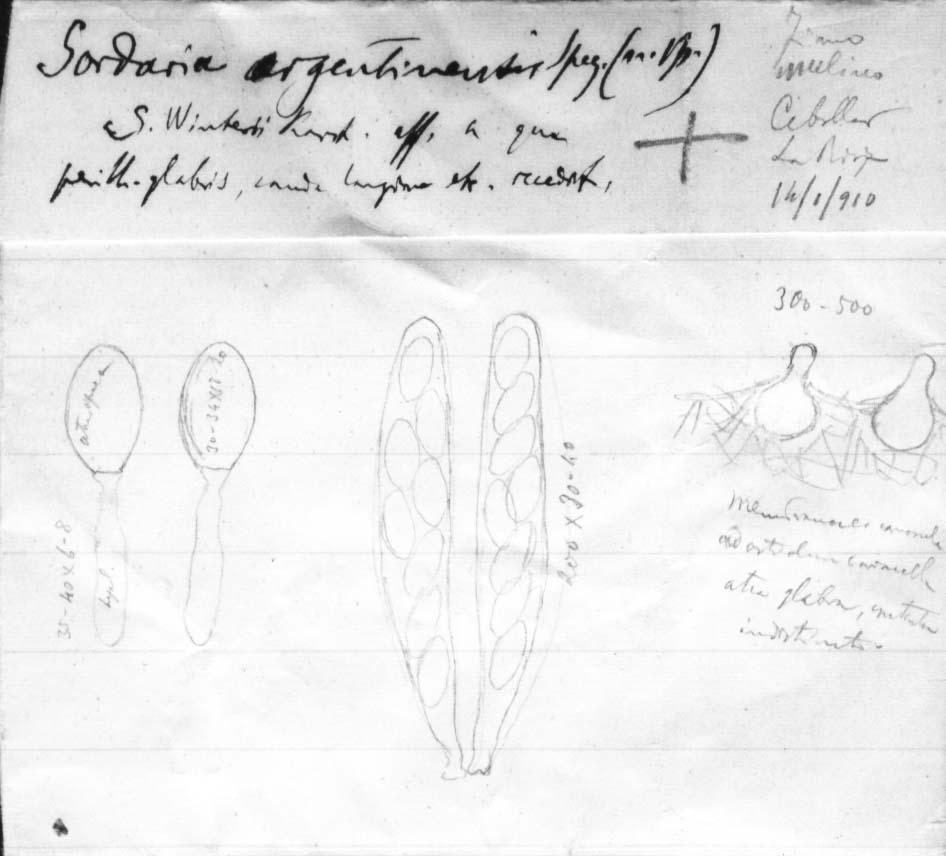 Sordaria argentinensis Speg. (n. sp.)
S. Winteri Karst. aff. a qua
perith. glabris, cauda longiore etc. recedit.
Fimo
mulino
Cebollar
La Rioja
14/1/910
300-500
atropurea
30-34x18-20
35-40x6-8
hyal.
200 x 30-40
Membranaceo
ad ostiolum
atra glabra,
indistincto.